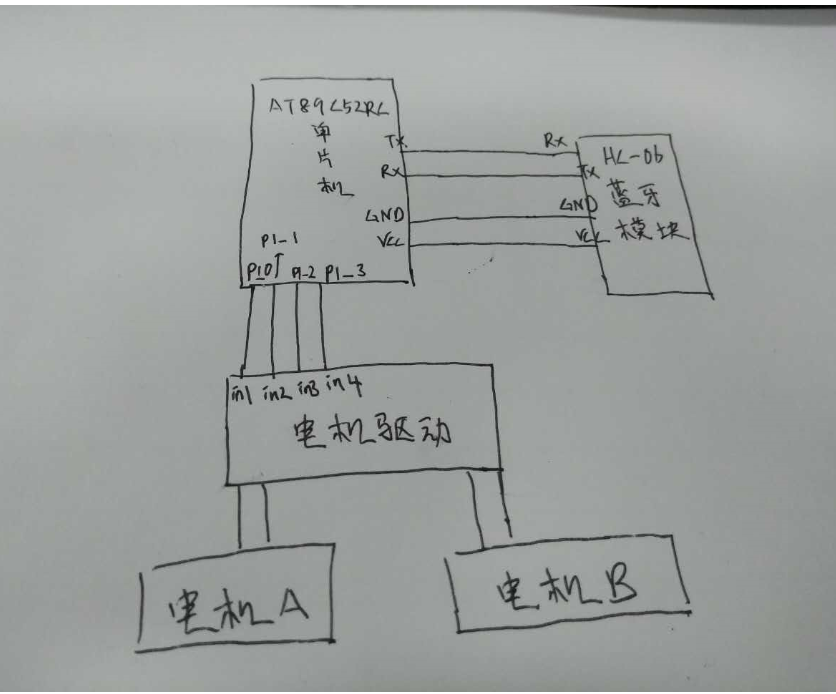 AT89C52RC
单
片
机
Tx
Rx
GND
VCC
P1-1
P1.0
P1-2
P1-3
Rx
Tx
GND
VCC
HC-06
蓝牙
模块
in1 in2 in3 in4
电机驱动
电机A
电机B